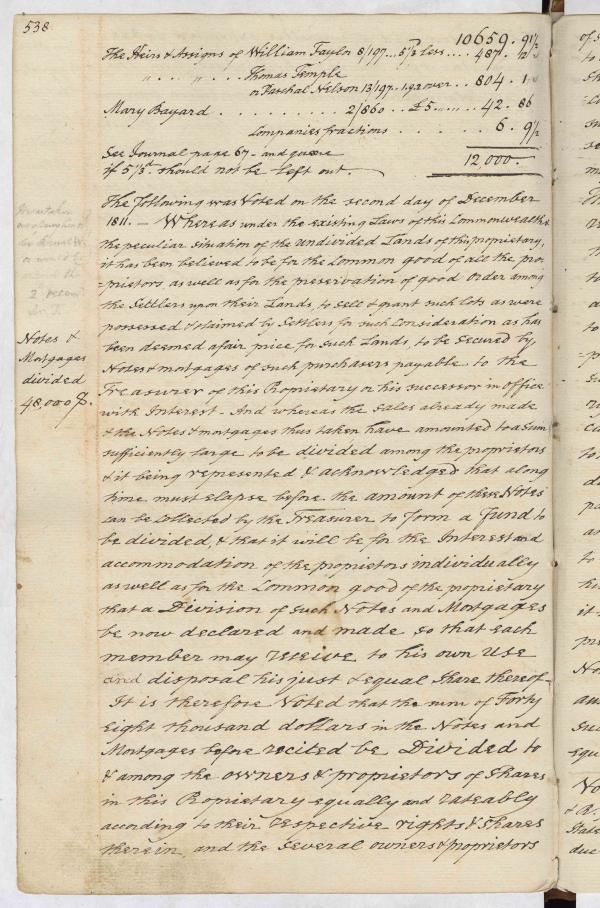 538
10659.91½
The Heirs & Assigns of William Taylor 8/197...5⅓ less....487.
" " " ... Thomas Temple
or Paschal Nelson 13/197..1.92 over..804.1
Mary Bayard . . . . . . . . . 2/860 .. £5 ...... 42.86
Companies fractions . . . . . . 6.9½
See Journal page 67 - and quere
if 5⅓d. should not be left out.
12,000.
The following was Voted on the second day of December
1811. — Whereas under the existing Laws of this Commonwealth &
the peculiar situation of the undivided Lands of this propriety,
it has been believed to be for the Common good of all the pro-
-prietors as well as for the preservation of good Order among
the Settlers upon their Lands, to sell & grant such lots as were
possessed & claimed by Settlers for such Consideration as has
been deemed a fair price for such Lands, to be secured by
Notes & mortgages of such purchasers payable to the
Treasurer of this Propriety or his successor in office
with Interest - And whereas the sales already made
& the Notes & mortgages thus taken have amounted to a sum
sufficiently large to be divided among the proprietors
& it being represented & acknowledged that a long
time must elapse before the amount of these Notes
can be Collected by the Treasurer to form a fund to
be divided, & that it will be for the Interest and
accommodation of the proprietors individually
as well as for the Common good of the propriety
that a Division of such Notes and Mortgages
be now declared and made so that each
member may receive to his own Use
and disposal his just & equal Share thereof -
It is therefore Voted that the sum of Forty
Eight thousand dollars in the Notes and
Mortgages before recited be Divided to
& among the owners & proprietors of Shares
in this Propriety equally and rateably
according to their respective rights & Shares
therein and the several owners & proprietors
Notes &
Mortgages
divided
48,000 $.